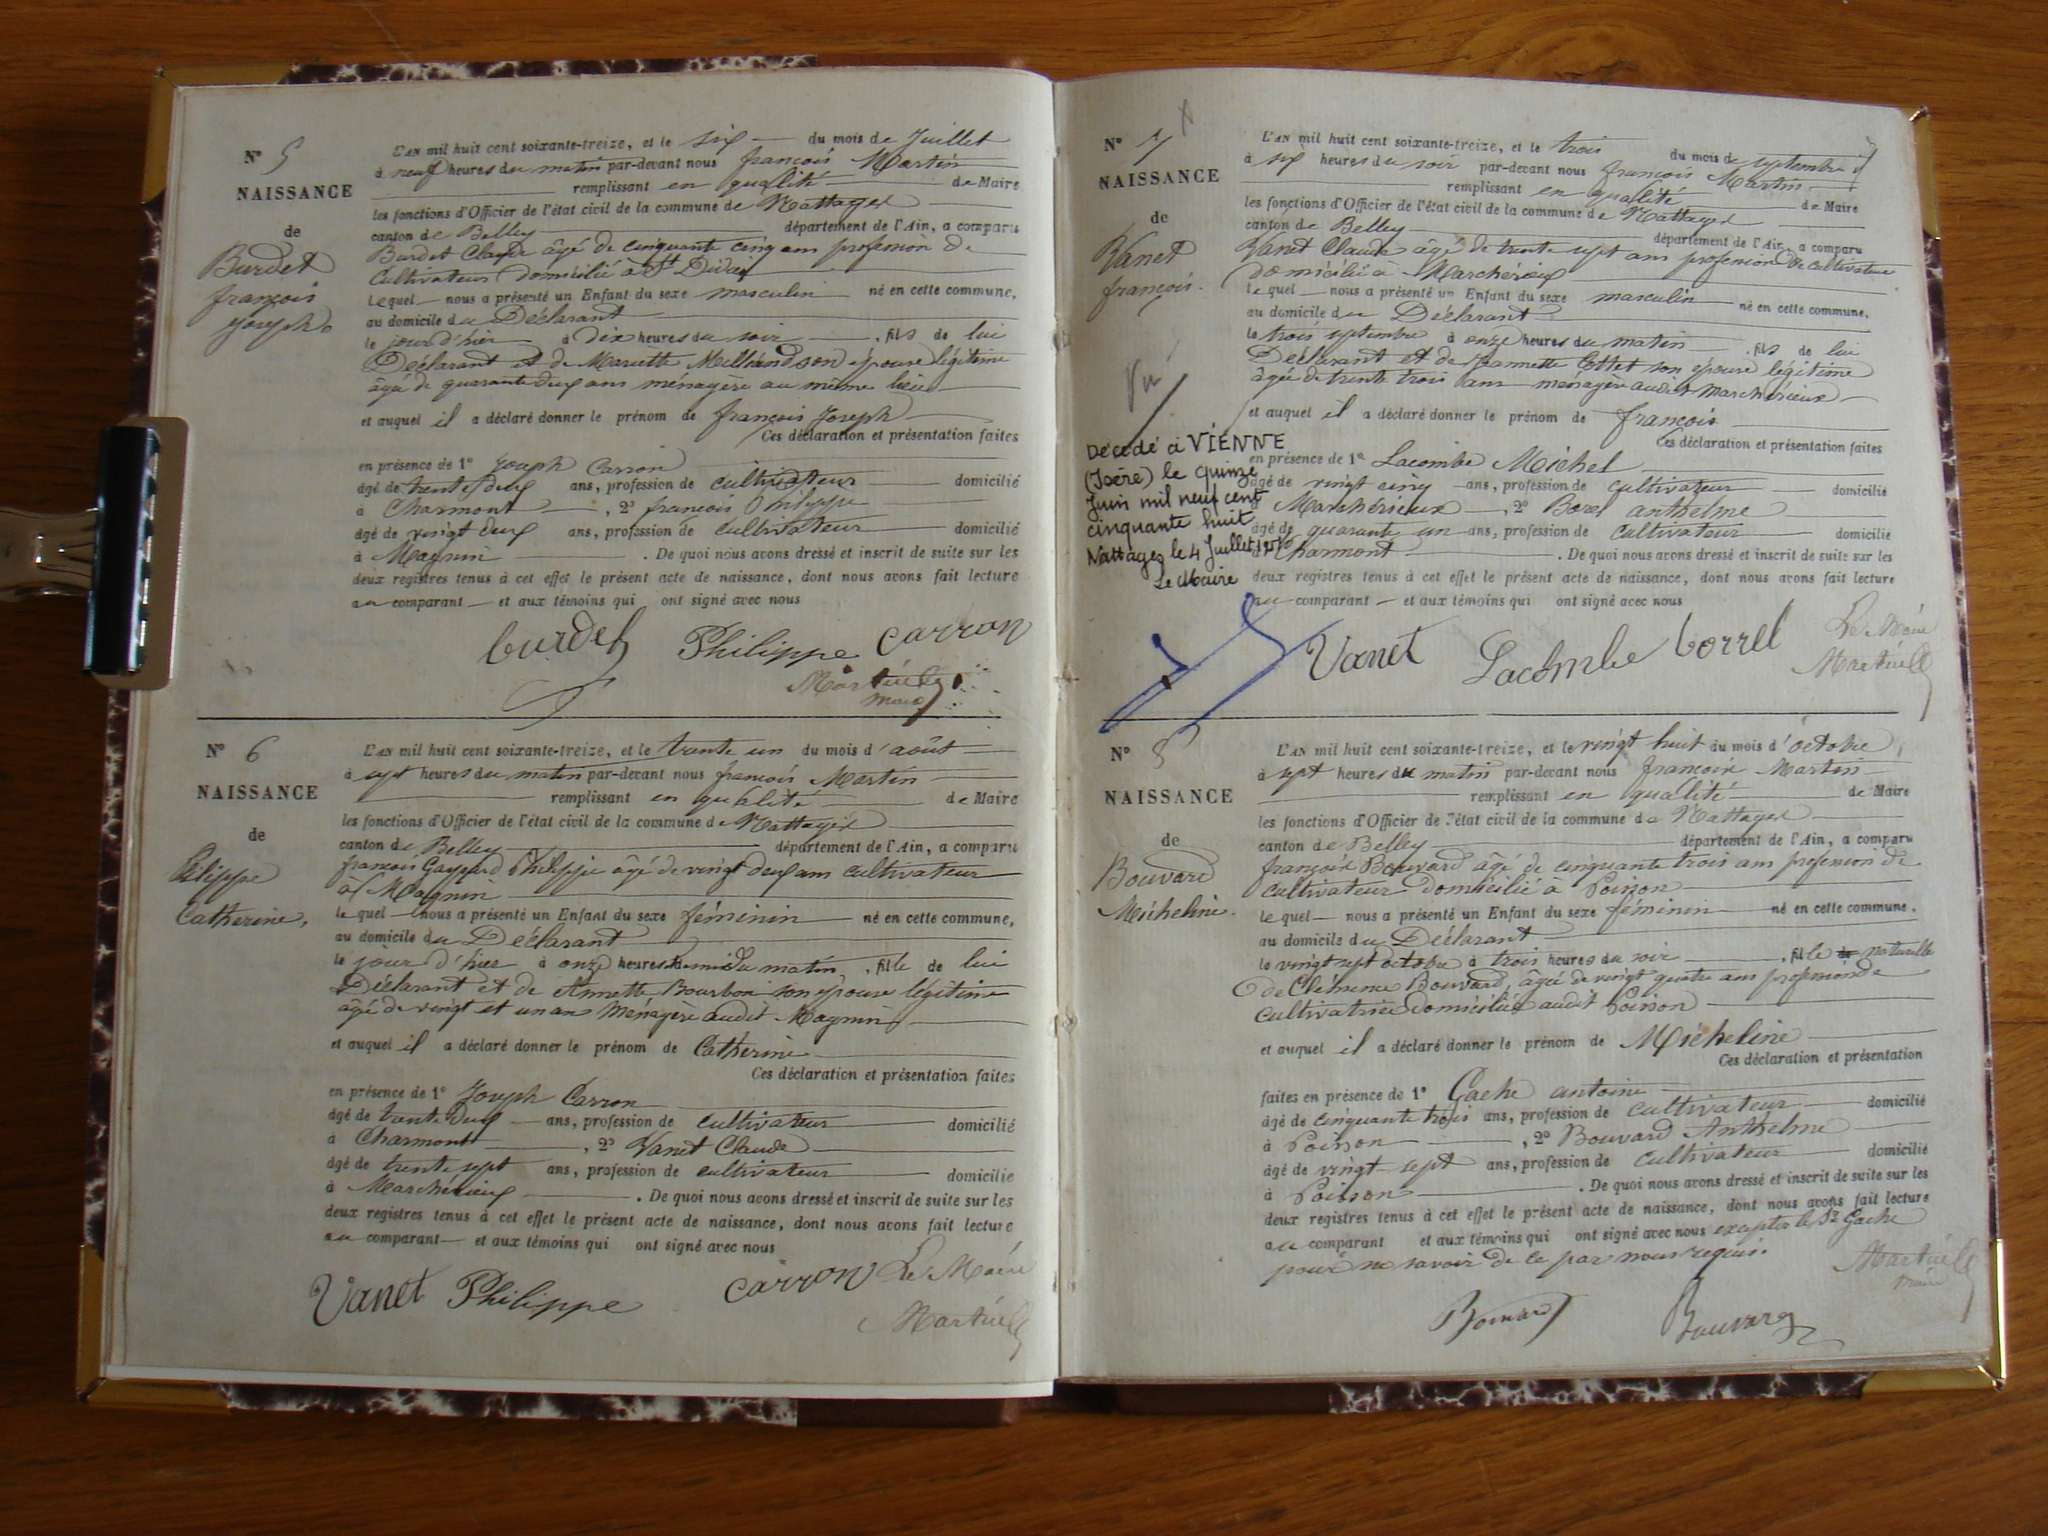 N° 5
NAISSANCE
de
Burdet
françois
joseph
L'AN mil huit cent soixante-treize, et le six du mois de Juillet
à neuf heures du matin par-devant nous françois Martin
remplissant en qualité de Maire
les fonctions d'Officier de l'état civil de la commune de Nattages
canton de Belley département de l'Ain, a comparu
Burdet Claude âgé de cinquante cinq ans profession de
Cultivateur domicilié à St Didier
lequel nous a présenté un Enfant du sexe masculin né en cette commune,
au domicile du Déclarant
le jour d'hier à dix heures du soir, fils de lui
Déclarant et de Mariette Milliand son épouse légitime
âgé de quarante deux ans ménagère au même lieu
et auquel il a déclaré donner le prénom de françois Joseph
Ces déclaration et présentation faites
en présence de 1° Joseph Carron
âgé de trente deux ans, profession de cultivateur domicilié
à Charmont, 2° françois Philippe
âgé de vingt deux ans, profession de cultivateur domicilié
à Magnin. De quoi nous avons dressé et inscrit de suite sur les
deux registres tenus à cet effet le présent acte de naissance, dont nous avons fait lecture
au comparant et aux témoins qui ont signé avec nous
burdet Philippe carron
Martin
maire
N° 6
NAISSANCE
de
Philippe
Catherine.
L'AN mil huit cent soixante-treize, et le trente un du mois d'août
à sept heures du matin par-devant nous françois Martin
remplissant en qualité de Maire
les fonctions d'Officier de l'état civil de la commune de Nattages
canton de Belley département de l'Ain, a comparu
françois Gaspard Philippe âgé de vingt deux ans cultivateur
à Magnin
lequel nous a présenté un Enfant du sexe féminin né en cette commune,
au domicile du Déclarant
le jour d'hier à onze heures du matin, fille de lui
Déclarant et de Annette Bourbon son épouse légitime
âgé de vingt et un ans Ménagère audit Magnin
et auquel il a déclaré donner le prénom de Catherine
Ces déclaration et présentation faites
en présence de 1° Joseph Carron
âgé de trente deux ans, profession de cultivateur domicilié
à Charmont, 2° Vanet Claude
âgé de trente sept ans, profession de cultivateur domicilié
à Marchérieux. De quoi nous avons dressé et inscrit de suite sur les
deux registres tenus à cet effet le présent acte de naissance, dont nous avons fait lecture
au comparant et aux témoins qui ont signé avec nous
Vanet Philippe carron Le Maire
Martin
N° 7
NAISSANCE
de
Vanet
françois.
Vu
Décédé à VIENNE
(Isère) le quinze
Juin mil neuf cent
cinquante huit
Nattages le 4 Juillet
Le Maire
L'AN mil huit cent soixante-treize, et le trois du mois de septembre
à six heures du soir par-devant nous françois Martin
remplissant en qualité de Maire
les fonctions d'Officier de l'état civil de la commune de Nattages
canton de Belley département de l'Ain, a comparu
Vanet Claude âgé de trente sept ans profession de cultivateur
domicilié à Marcherieux
lequel nous a présenté un Enfant du sexe masculin né en cette commune,
au domicile du Déclarant
le trois septembre à onze heures du matin, fils de lui
Déclarant et de Jeannette Cottet son épouse légitime
âgée de trente trois ans ménagère audit Marchérieux
et auquel il a déclaré donner le prénom de françois
Ces déclaration et présentation faites
en présence de 1° Lacombe Michel
âgé de vingt cinq ans, profession de cultivateur domicilié
Marchérieux, 2° Borel anthelme
âgé de quarante un ans, profession de cultivateur domicilié
Charmont. De quoi nous avons dressé et inscrit de suite sur les
deux registres tenus à cet effet le présent acte de naissance, dont nous avons fait lecture
au comparant et aux témoins qui ont signé avec nous
Vanet Lacombe borrel Le Maire
Martin
N° 8
NAISSANCE
de
Bouvard
Micheline.
L'AN mil huit cent soixante-treize, et le vingt huit du mois d'octobre
à sept heures du matin par-devant nous françois Martin
remplissant en qualité de Maire
les fonctions d'Officier de l'état civil de la commune de Nattages
canton de Belley département de l'Ain, a comparu
françois Bouvard âgé de cinquante trois ans profession de
cultivateur domicilié à Poisson
lequel nous a présenté un Enfant du sexe féminin né en cette commune,
au domicile du Déclarant
le vingt sept octobre à trois heures du soir, fille de naturelle
de Clémence Bouvard, âgée de vingt quatre ans profession de
cultivatrice domiciliée audit Poisson
et auquel il a déclaré donner le prénom de Micheline
Ces déclaration et présentation
faites en présence de 1° Gache antoine
âgé de cinquante trois ans, profession de cultivateur domicilié
à Poisson, 2° Bouvard Anthelme
âgé de vingt sept ans, profession de cultivateur domicilié
à Poisson. De quoi nous avons dressé et inscrit de suite sur les
deux registres tenus à cet effet le présent acte de naissance, dont nous avons fait lecture
au comparant et aux témoins qui ont signé avec nous excepté le Sr Gache
pour ne savoir de ce par nous requis.
Martin
maire
Bouvard Bouvard